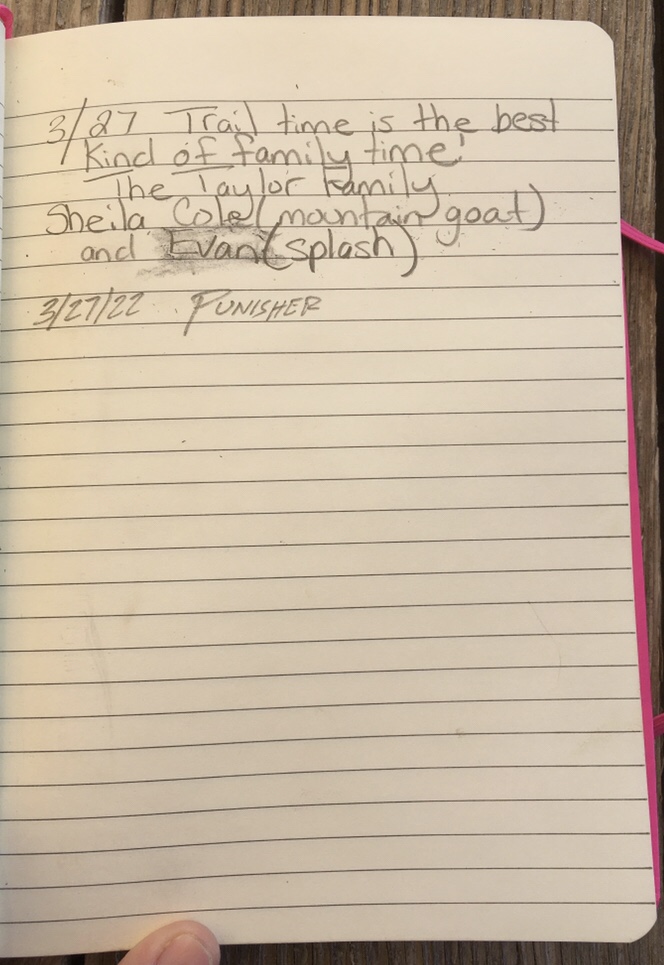 3/27 Trail time is the best
Kind of family time!
The Taylor Family
Sheila Cole (mountain goat)
and Evan (splash)
3/27/22 PUNISHER